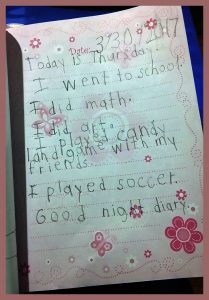 Date: 3/30/2017
Today is Thursday.
I went to school.
I did math.
I did art.
I played candy
land game with my
friends.
I played soccer.
Good night diary.